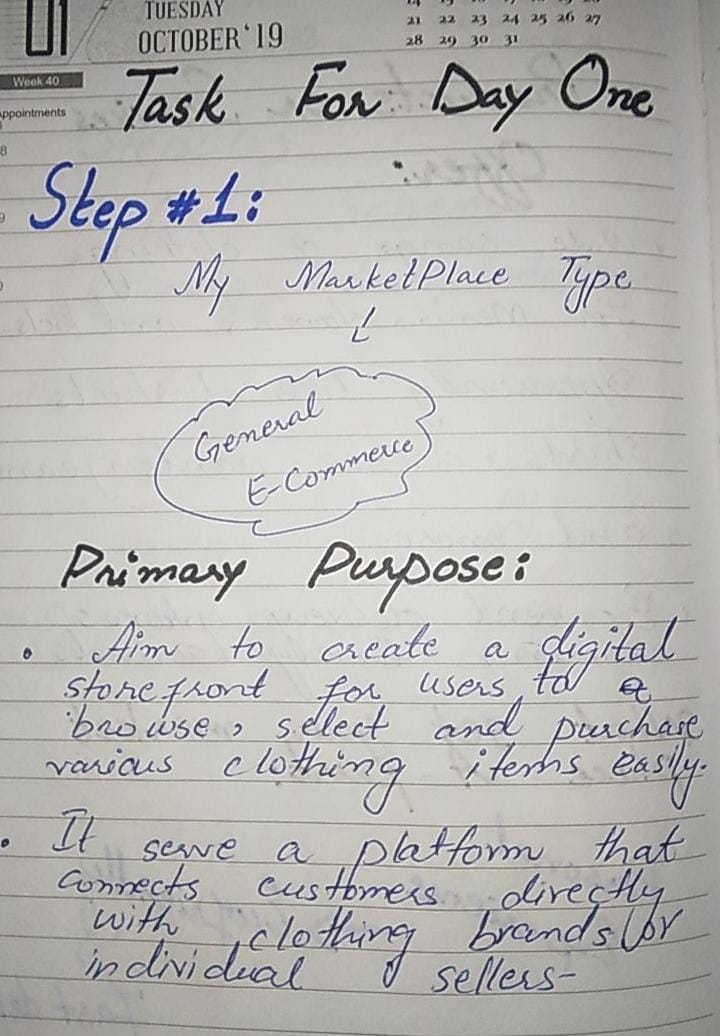 01
TUESDAY
OCTOBER'19
21 22 23 24 25 26 27
28 29 30 31
Week 40
Appointments
8
9
Task For Day One
Step #1:
My MarketPlace Type
General
E-Commerce
Primary Purpose:
• Aim to create a digital
storefront for users to a
browse, select and purchase
various clothing items easily.
• It serve a platform that
connects customers directly
with clothing brands or
individual sellers-